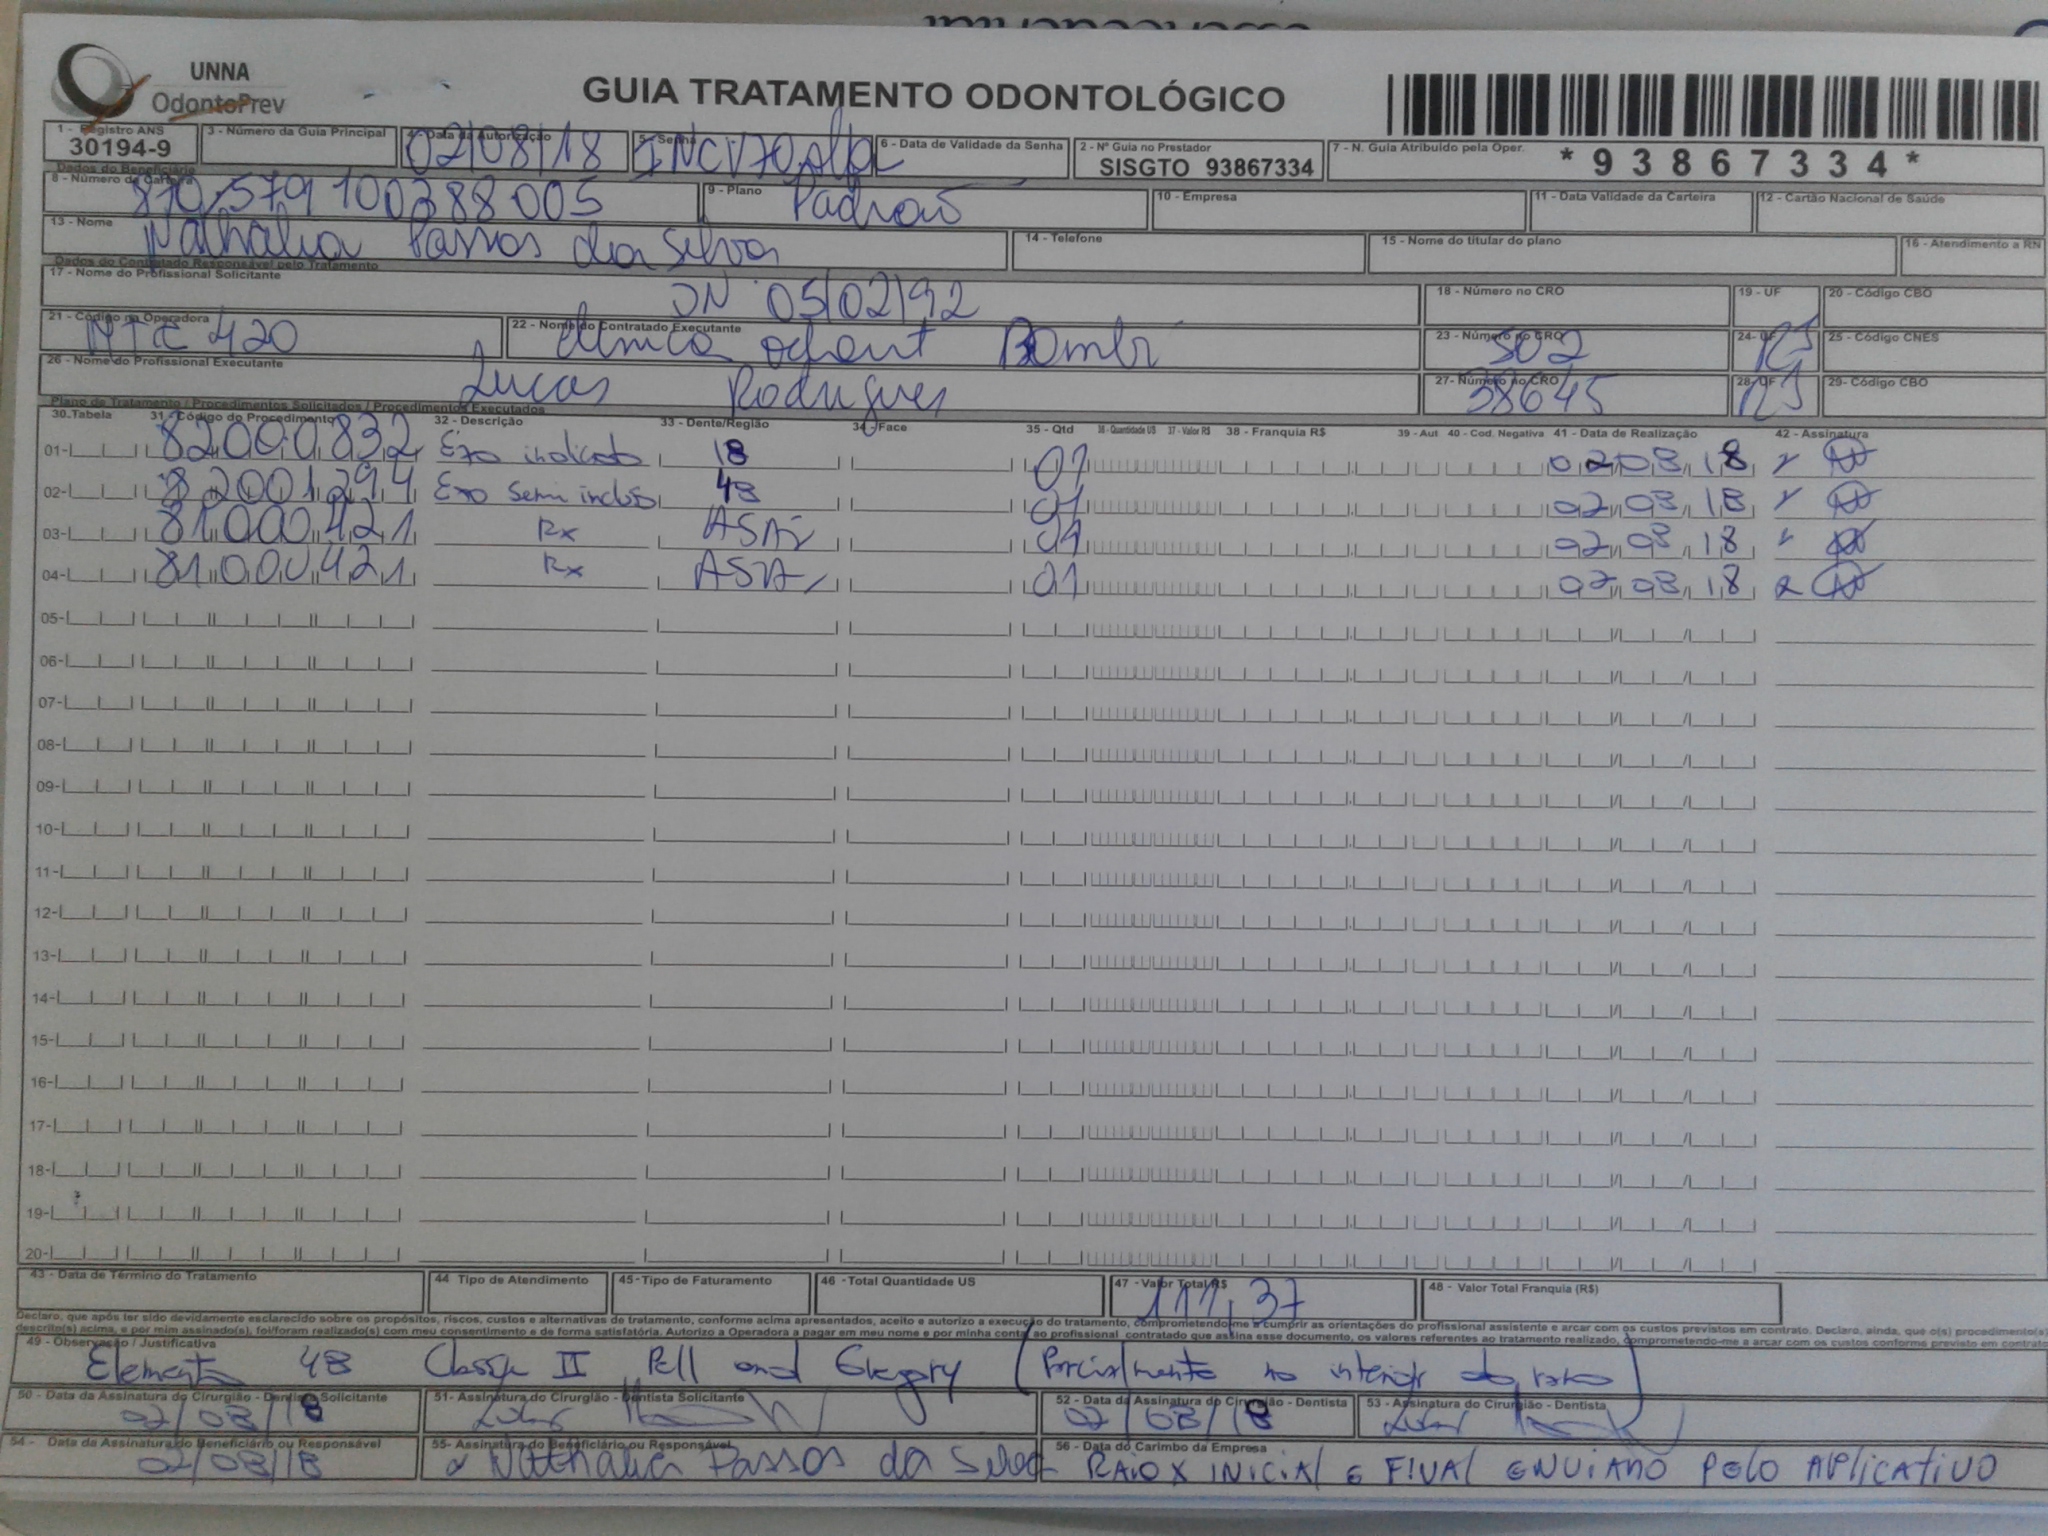 UNNA
OdontoPrev
GUIA TRATAMENTO ODONTOLÓGICO
* 9 3 8 6 7 3 3 4 *
1 - Registro ANS
30194-9
3 - Número da Guia Principal
4 - Data da Autorização
02/08/18
5 - Senha
6 - Data de Validade da Senha
2 - Nº Guia no Prestador
SISGTO 93867334
7 - N. Guia Atribuído pela Oper.
Dados do Beneficiário
8 - Número da Carteira
9 - Plano
Padrão
10 - Empresa
11 - Data Validade da Carteira
12 - Cartão Nacional de Saúde
13 - Nome
Nathalia Passos da Silva
14 - Telefone
15 - Nome do titular do plano
16 - Atendimento a RN
Dados do Contratado Responsável pelo Tratamento
17 - Nome do Profissional Solicitante
DN 05/02/92
18 - Número no CRO
19 - UF
20 - Código CBO
21 - Código na Operadora
22 - Nome do Contratado Executante
23 - Número no CRO
502
24 - UF
RS
25 - Código CNES
26 - Nome do Profissional Executante
Lucas Rodrigues
27 - Número no CRO
28 - UF
RS
29 - Código CBO
Plano de Tratamento / Procedimentos Solicitados / Procedimentos Executados
30-Tabela 31 - Código do Procedimento 32 - Descrição 33 - Dente/Região 34 - Face 35 - Qtd 36 - Quantidade US 37 - Valor R$ 38 - Franquia R$ 39 - Aut 40 - Cod. Negativa 41 - Data de Realização 42 - Assinatura
01- 82000832 Exo indicada 18 01 02 08 18
02- 82001294 Exo semi incluso 48 01 02 08 18
03- 81000421 Rx ASAI 01 02 08 18
04- 81000421 Rx 01 02 08 18
05-
06-
07-
08-
09-
10-
11-
12-
13-
14-
15-
16-
17-
18-
19-
20-
43 - Data de Término do Tratamento
44 Tipo de Atendimento
45 - Tipo de Faturamento
46 - Total Quantidade US
47 - Valor Total R$
111,37
48 - Valor Total Franquia (R$)
Declaro, que após ter sido devidamente esclarecido sobre os propósitos, riscos, custos e alternativas de tratamento, conforme acima apresentados, aceito e autorizo a execução do tratamento, comprometendo-me a cumprir as orientações do profissional assistente e arcar com os custos previstos em contrato. Declaro, ainda, que o(s) procedimento(s)
descrito(s) acima, e por mim assinado(s), foi/foram realizado(s) com meu consentimento e de forma satisfatória. Autorizo a Operadora a pagar em meu nome e por minha conta, ao profissional contratado que assina esse documento, os valores referentes ao tratamento realizado, comprometendo-me a arcar com os custos conforme previsto em contrato.
49 - Observação / Justificativa
Elemento 48 Classe II Pell and Gregory (Parcialmente no interior do ramo)
50 - Data da Assinatura do Cirurgião - Dentista Solicitante
02/08/18
51 - Assinatura do Cirurgião - Dentista Solicitante
52 - Data da Assinatura do Cirurgião - Dentista
02/08/18
53 - Assinatura do Cirurgião - Dentista
54 - Data da Assinatura do Beneficiário ou Responsável
02/08/18
55 - Assinatura do Beneficiário ou Responsável
Nathalia Passos da Silva
56 - Data do Carimbo da Empresa
RAIO X INICIAL E FINAL ENVIADO PELO APLICATIVO